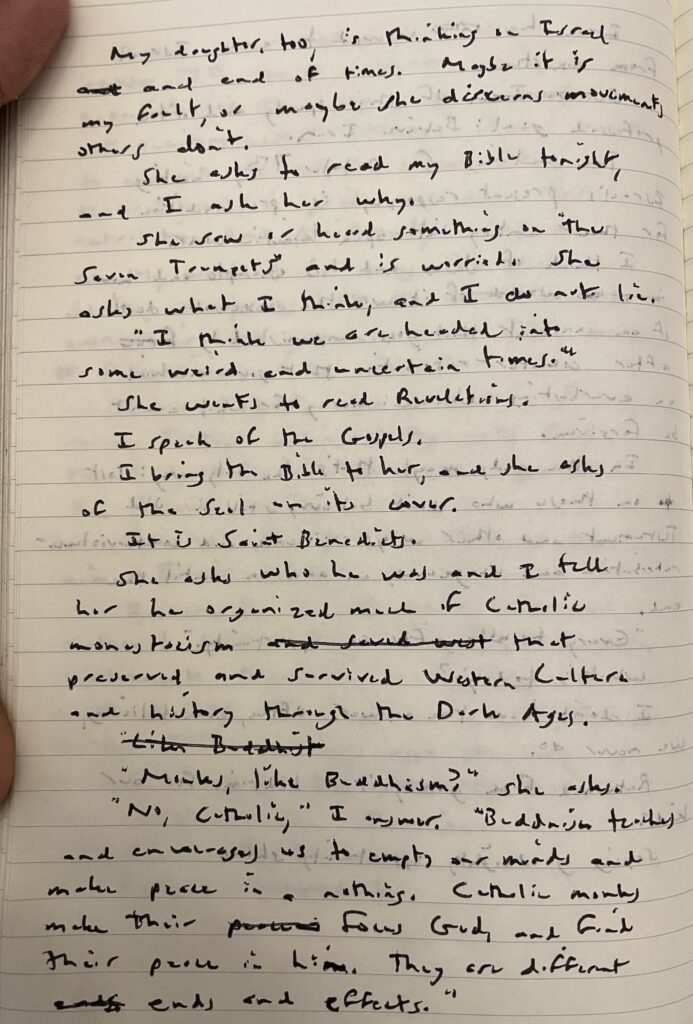 My daughter, too, is thinking on Israel
and and end of times. Maybe it is
my fault, or maybe she discerns movements
others don't.
She asks to read my Bible tonight,
and I ask her why.
She saw or heard something on "the
Seven Trumpets" and is worried. She
asks what I think, and I do not lie.
"I think we are headed into
some weird and uncertain times."
She wants to read Revelations.
I speak of the Gospels.
I bring the Bible to her, and she asks
of the seal on its cover.
It is Saint Benedict's.
She asks who he was and I tell
her he organized much of Catholic
monasticism and saved west that
preserved and survived Western Culture
and history through the Dark Ages.
"Like Buddhist
"Monks, like Buddhism?" she asks.
"No, Catholic," I answer. "Buddhism teaches
and encourages us to empty our minds and
make peace in a nothing. Catholic monks
make their focus God, and find
their peace in him. They are different
ends and effects."